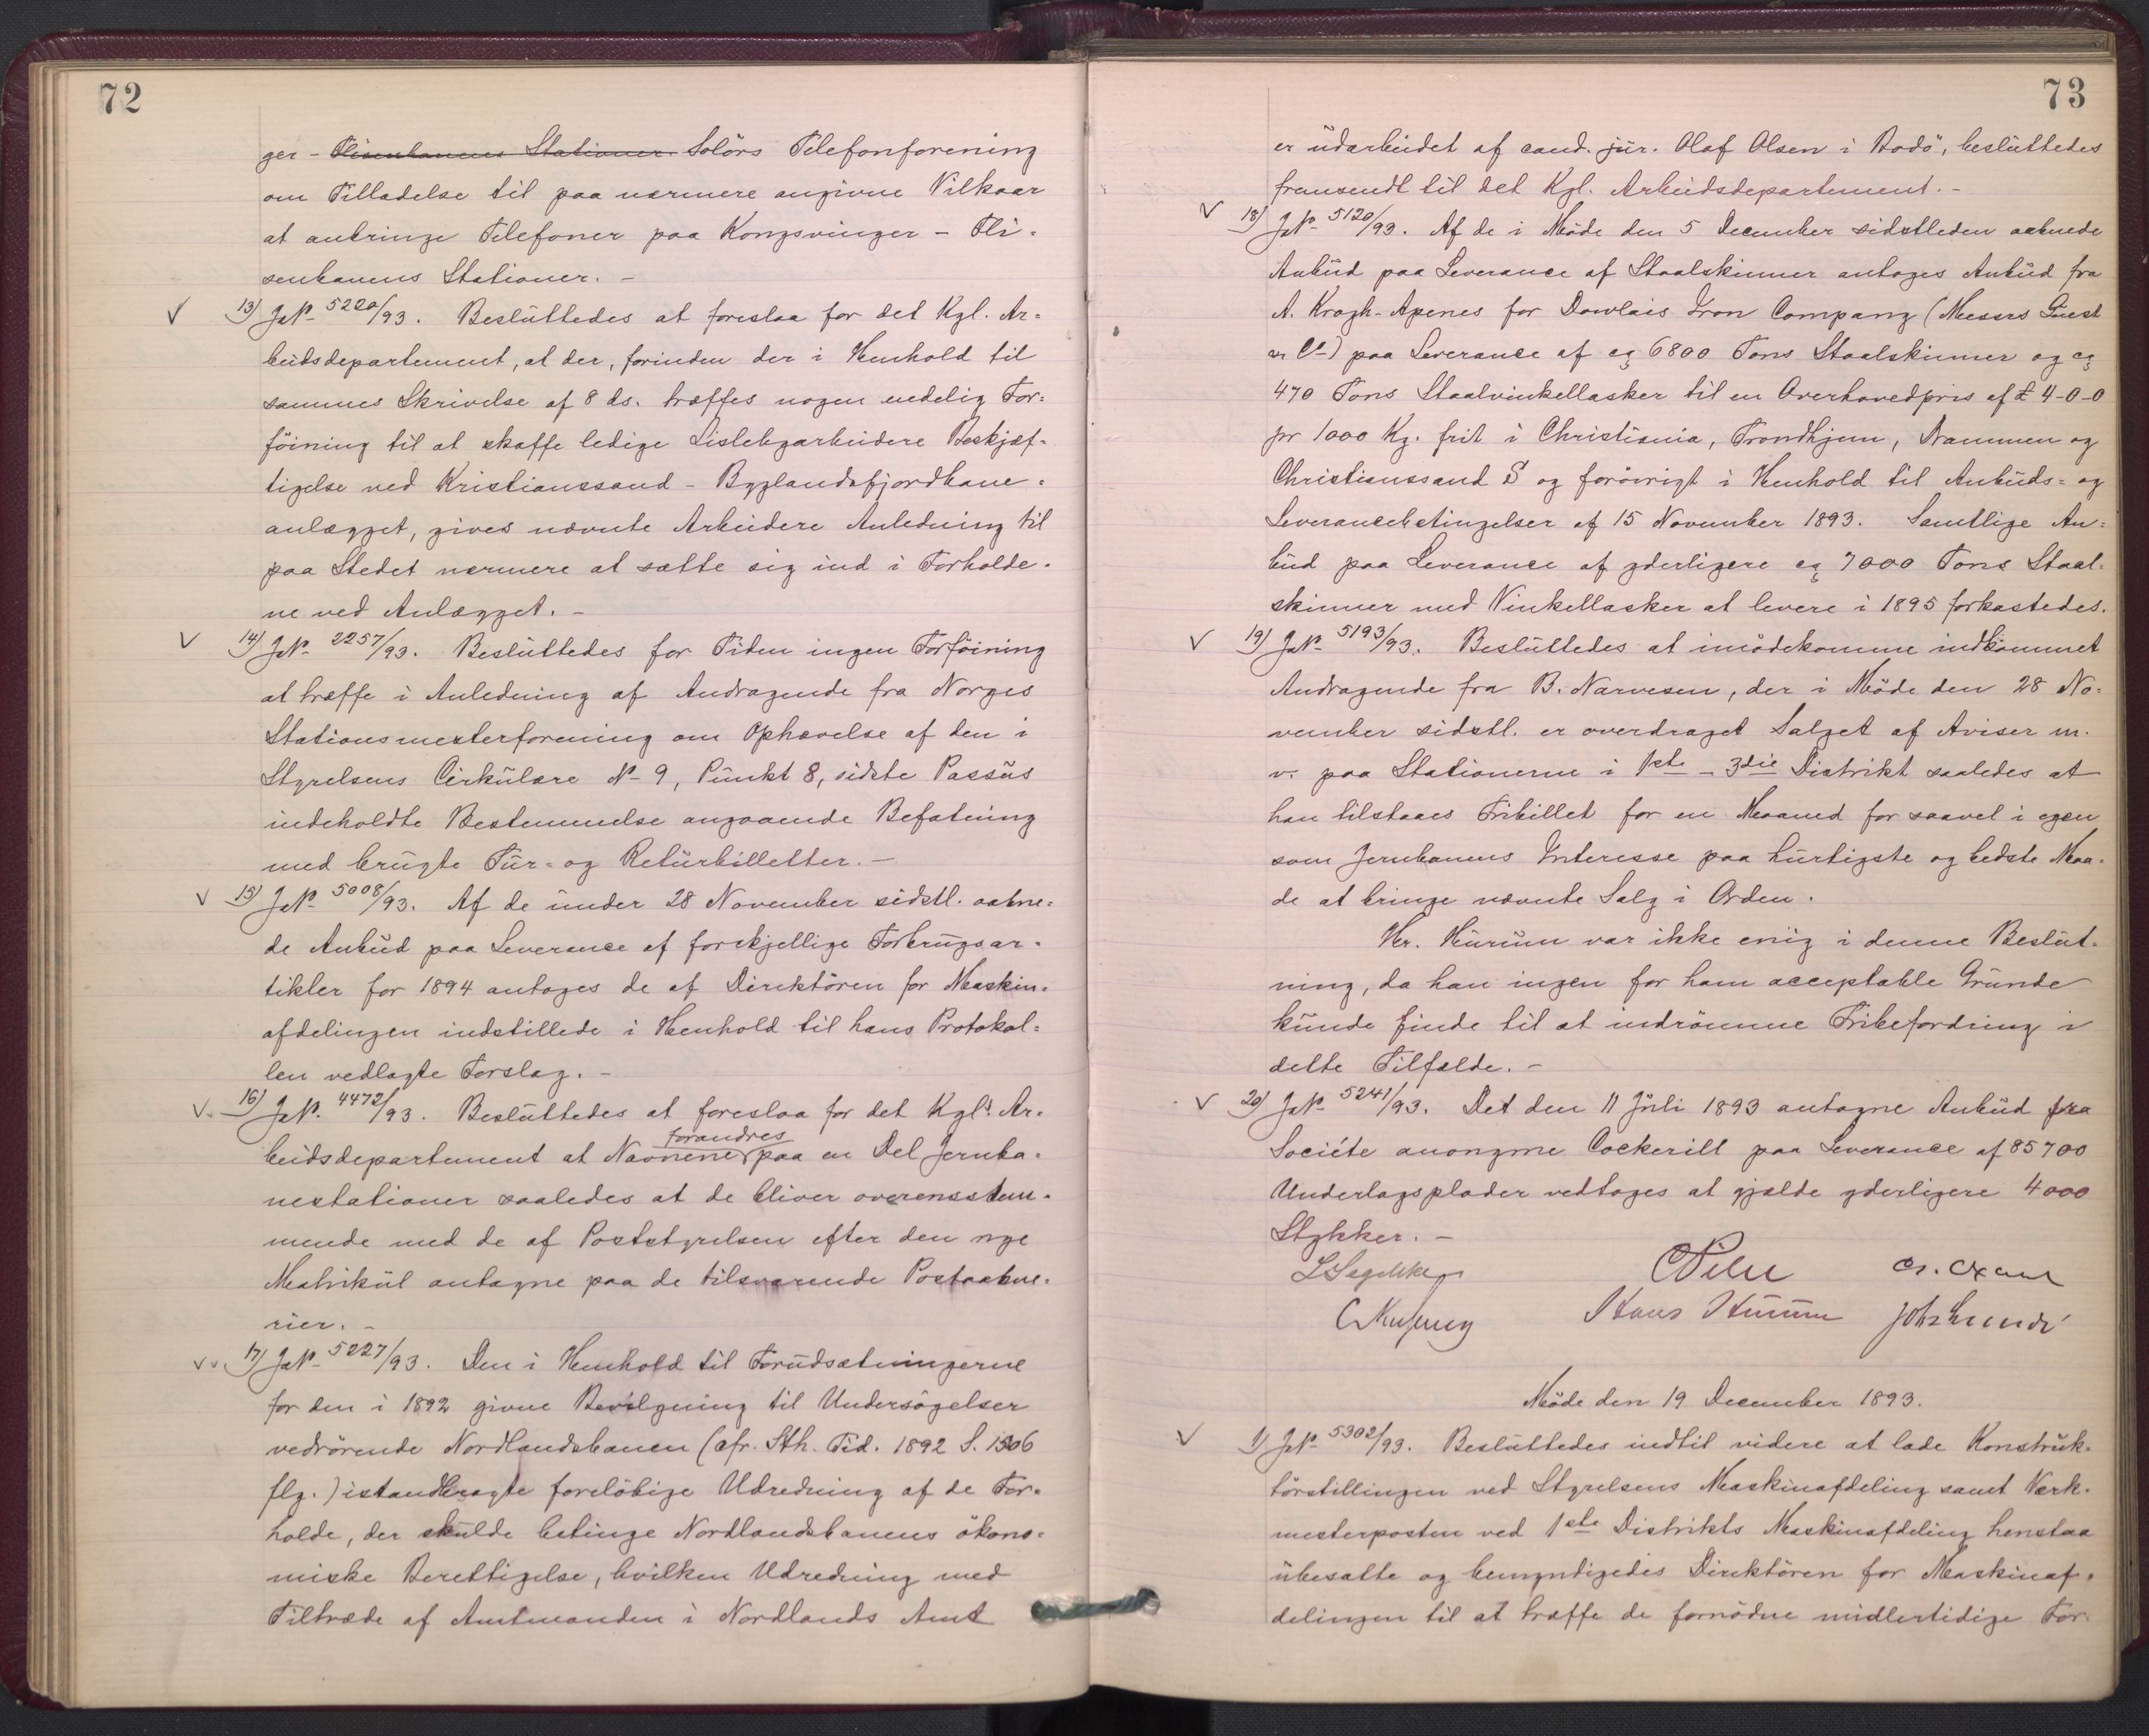 72
ger - Flisenbanens Stationer Solörs Telefonforening
om Tilladelse til paa nærmere angivne Vilkaar
at anbringe Telefoner paa Kongsvinger - Fli-
senbanens Stationer. -
√ 13) JN° 5220/93. Beslüttedes at foreslaa for det Kgl. Ar=
beidsdepartement, at der, forinden der i Henhold til
sammes Skrivelse af 8 ds. træffes nogen endelig For=
föining til at skaffe ledige Lislebyarbeidere Beskjæf-
tigelse ved Kristianssand - Byglandsfjordbane-
anlægget, gives nævnte Arbeidere Anledning til
paa Stedet nærmere at sætte sig ind i Forholde-
ne ved Anlægget. -
√ 14) JN° 2257/93. Beslüttedes for Tiden ingen Forföining
at træffe i Anledning af Andragende fra Norges
Stationsmesterforening om Ophævelse af den i
Styrelsens Cirkülære N° 9, Pünkt 8, sidste Passüs
indeholdte Bestemmelse angaaende Befatning
med brügte Tür= og Retürbilletter. -
√ 15) JN° 5008/93. Af de ünder 28 November sidstl. aabne=
de Anbüd paa Leverance af forskjellige Forbrugsar-
tikler for 1894 antoges de af Direktören for Maskin=
afdelingen indstillede i Henhold til hans Protokol=
len vedlagte Forslag. -
√. 16) JN° 4472/93. Beslüttedes at foreslaa for det Kgl. Ar-
forandres
beidsdepartement at Navnene paa en Del Jernba-
nestationer saaledes at de bliver overensstem-
mende med de af Poststyrelsen efter den nye
Matrikül antagne paa de tilsvarende Postaabne-
rier. -
√√ 17) JN° 5227/93. Den i Henhold til Forüdsætningerne
for den i 1892 givne Bevilgning til Undersögelser
vedrörende Nordlandsbanen (cfr. Sth. Tid. 1892 S. 1506
flg.) istandbragte forelöbige Udredning af de For-
holde, der skülde betinge Nordlandsbanens ökono=
miske Berettigelse, hvilken Udredning med
Tiltræde af Amtmanden i Nordlands Amt
73
er üdarbeidet af cand. jür. Olaf Olsen i Bodö, beslüttedes
fremsendt til det Kgl. Arbeidsdepartement. -
√ 18) JN° 5120/93. Af de i Möde den 5 December sidstleden aabnede
Anbüd paa Leverance af Staalskinner antoges Anbüd fra
A. Krogh-Apenes for Dowlais Iron Company (Messrs Güest
& C°) paa Leverance af ca 6800 Tons Staalskinner og ca
470 Tons Staalvinkellasker til en Overhovedpris af £ 4-0-0
pr 1000 Kg. frit i Christiania, Trondhjem, Drammen og
Christianssand S og forövrigt i Henhold til Anbüds= og
Leverancebetingelser af 15 November 1893. Samtlige An=
büd paa Leverance af yderligere ca 7000 Tons Staal=
skinner med Vinkellasker at levere i 1895 forkastedes.
√ 19) JN° 5193/93. Beslüttedes at imödekomme indkommet
Andragende fra B. Narvesen, der i Möde den 28 No=
vember sidstl. er overdraget Salget af Aviser m.
v. paa Stationerne i 1ste - 3die Distrikt saaledes at
han tilstaaes Fribillet for en Maaned for saavel i egen
som Jernbanens Interesse paa hürtigste og bedste Maa=
de at bringe nævnte Salg i Orden.
Hr. Hürüm var ikke enig i denne Beslüt-
ning, da han ingen for ham acceptable Gründe
künde finde til at indrömme Fribefordring i
dette Tilfælde. -
√ 20) JN° 5241/93. Det den 11 Jüli 1893 antagne Anbüd fra
Sociéte anonyme Cockerill paa Leverance af 85700
Underlagsplader vedtoges at gjælde yderligere 4000
Stykker. -
C Pihl
Hans Hürüm
Möde den 19 December 1893.
√ 1) JN° 5302/93. Beslüttedes indtil videre at lade Konstrük-
törstillingen ved Styrelsens Maskinafdeling samt Værk-
mesterposten ved 1ste Distrikts Maskinafdeling henstaa
übesatte og bemyndigedes Direktören for Maskinaf-
delingen til at træffe de fornödne midlertidige For-